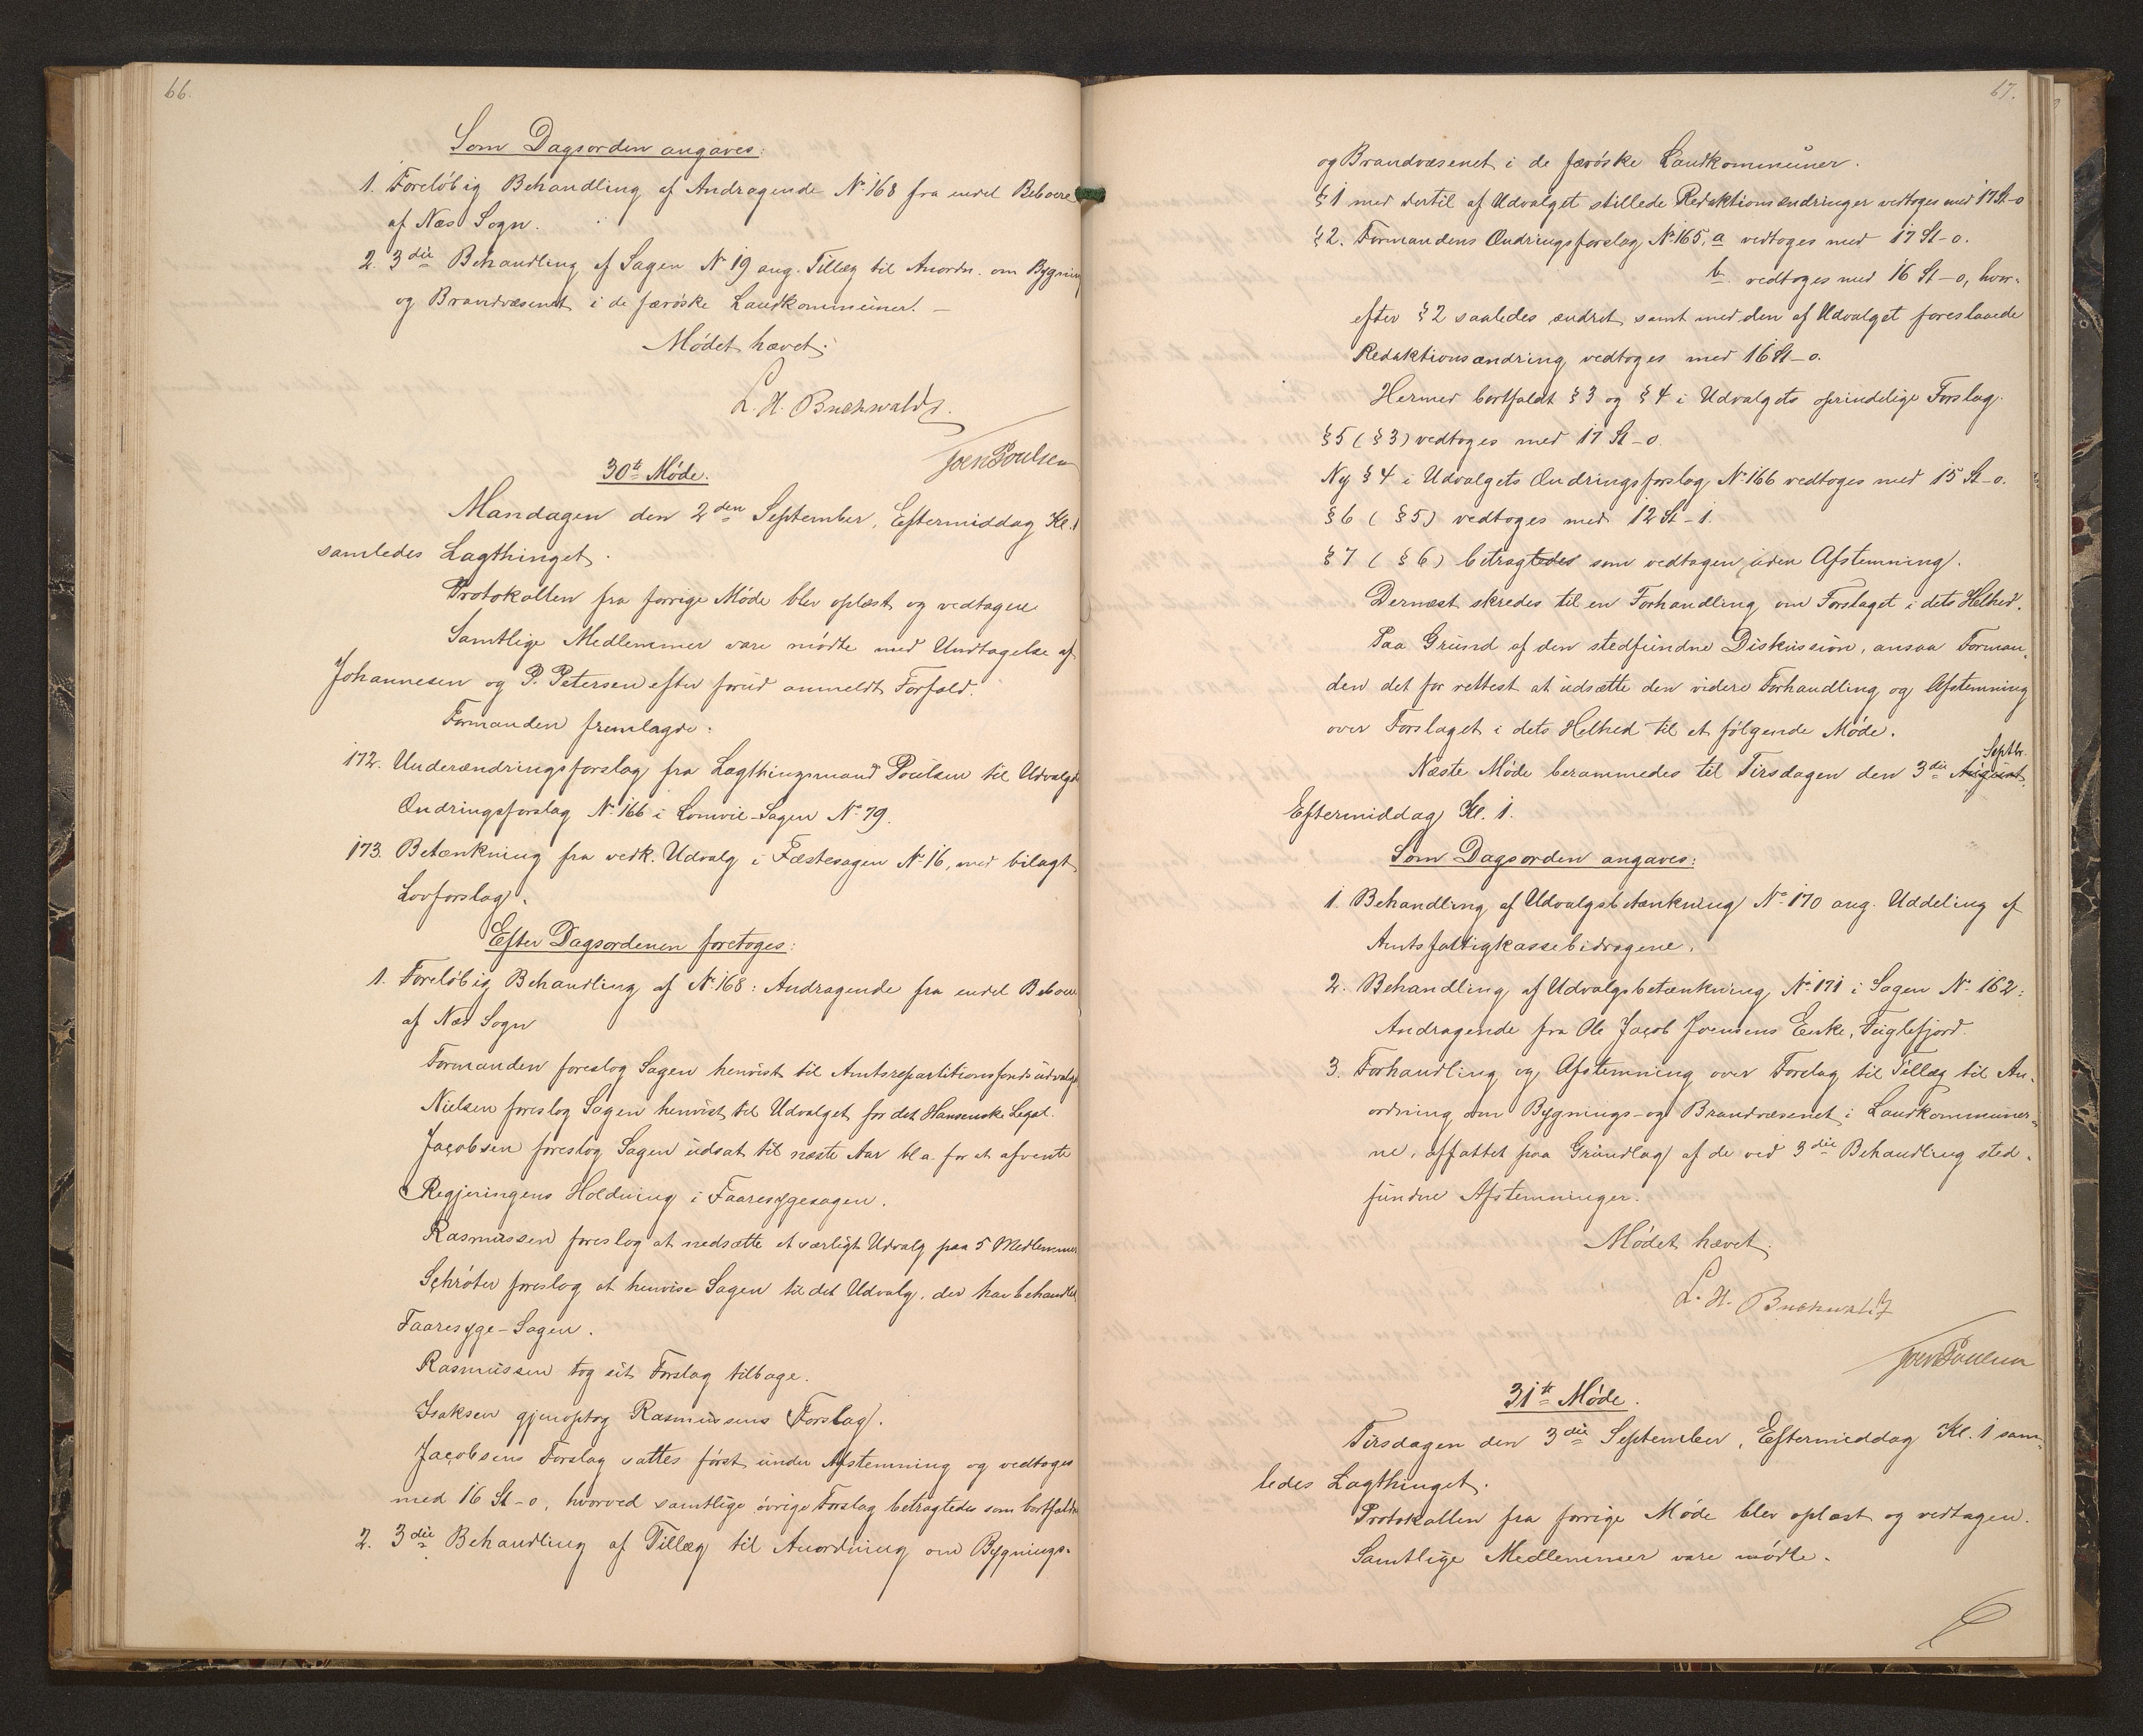 66.
Som Dagsorden angaves:
1. Foreløbig Behandling af Andragende No 168 fra endel Beboere
af Næs Sogn.
2. 3die Behandling af Sagen No 19 ang. Tillæg til Anordn. om Bygnin
og Brandvæsenet i de færøske Landkommuner. —
Mødet hævet.
L. H. Buchwaldt.
Joen Poulsen
30te Møde.
Mandagen den 2den September, Eftermiddag Kl. 1
samledes Lagthinget.
Protokollen fra forrige Møde blev oplæst og vedtagen
Samtlige Medlemmer vare mødte med Undtagelse af
Johannesen og P. Petersen efter forud anmeldt Forfald.
Formanden fremlagde:
172. Underændringsforslag fra Lagthingsmand Poulsen til Udvalgets
Ændringsforslag No 166 i Lomvie-Sagen No 79.
173. Betænkning fra vedk. Udvalg i Fæstesagen No 16, med bilagt
Lovforslag.
Efter Dagsordenen foretoges:
1. Foreløbig Behandling af No 168: Andragende fra endel Beboere
af Næs Sogn
Formanden foreslog Sagen henvist til Amtsrepartitionsfondsudvalget
Nielsen foreslog Sagen henvist til Udvalget for det Hansenske Legat.
Jacobsen foreslog Sagen udsat til næste Aar bl.a. for at afvente
Regjeringens Holdning i Faaresygesagen.
Rasmussen foreslog at nedsætte et særligt Udvalg paa 5 Medlemmer
Schrøter foreslog at henvise Sagen til det Udvalg, der har behandlet
Faaresyge-Sagen.
Rasmussen tog sit Forslag tilbage.
Isaksen gjenoptog Rasmussens Forslag.
Jacobsens Forslag sattes først under Afstemning og vedtoges
med 16 St-0, hvorved samtlige øvrige Forslag betragtedes som bortfaldne
2. 3die Behandling af Tillæg til Anordning om Bygnings-
67.
og Brandvæsenet i de færøske Landkommuner.
§ 1 med dertil af Udvalget stillede Redaktionsændringer vedtoges med 17 St-0
§ 2. Formandens Ændringsforslag No 165, a vedtoges med 17 St-0.
b. vedtoges med 16 St-0, hvor-
efter § 2 saaledes ændret samt med den af Udvalget foreslaaede
Redaktionsændring vedtoges med 16 St-0.
Hermed bortfaldt § 3 og § 4 i Udvalgets oprindelige Forslag.
§ 5 (§ 3) vedtoges med 17 St-0.
Ny § 4 i Udvalgets Ændringsforslag No 166 vedtoges med 15 St-0.
§ 6 (§ 5) vedtoges med 12 St-1.
§ 7 (§ 6) betragtedes som vedtagen uden Afstemning.
Dernæst skredes til en Forhandling om Forslaget i dets Helhed.
Paa Grund af den stedfundne Diskussion, ansaa Forman-
den det for rettest at udsætte den videre Forhandling og Afstemning
over Forslaget i dets Helhed til et følgende Møde.
Septbr.
Næste Møde berammedes til Tirsdagen den 3die August,
Eftermiddag Kl. 1.
Som Dagsorden angaves:
1. Behandling af Udvalgsbetænkning No 170 ang. Uddeling af
Amtsfattigkassebidragene.
2. Behandling af Udvalgsbetænkning No 171 i Sagen No 162:
Andragende fra Ole Jacob Joensens Enke, Fuglefjord.
3. Forhandling og Afstemning over Forslag til Tillæg til An-
ordning om Bygnings- og Brandvæsenet i Landkommuner-
ne, affattet paa Grundlag af de ved 3die Behandling sted-
fundne Afstemninger.
Mødet hævet.
L. H. Buchwaldt
Joen Poulsen
31te Møde.
Tirsdagen den 3die September, Eftermiddag Kl. 1 sam-
ledes Lagthinget.
Protokollen fra forrige Møde blev oplæst og vedtagen.
Samtlige Medlemmer vare mødte.